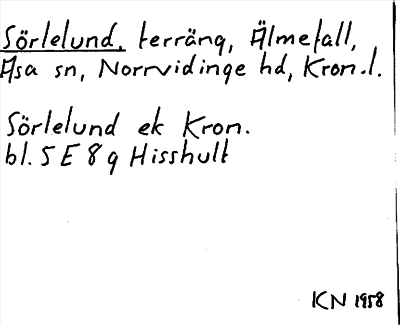 Sörlelund, terräng, Älmefall,
Asa sn, Norrvidinge hd, Kron.l.
Sörlelund ek Kron.
bl. 5 E 8 g Hisshult
KN 1958